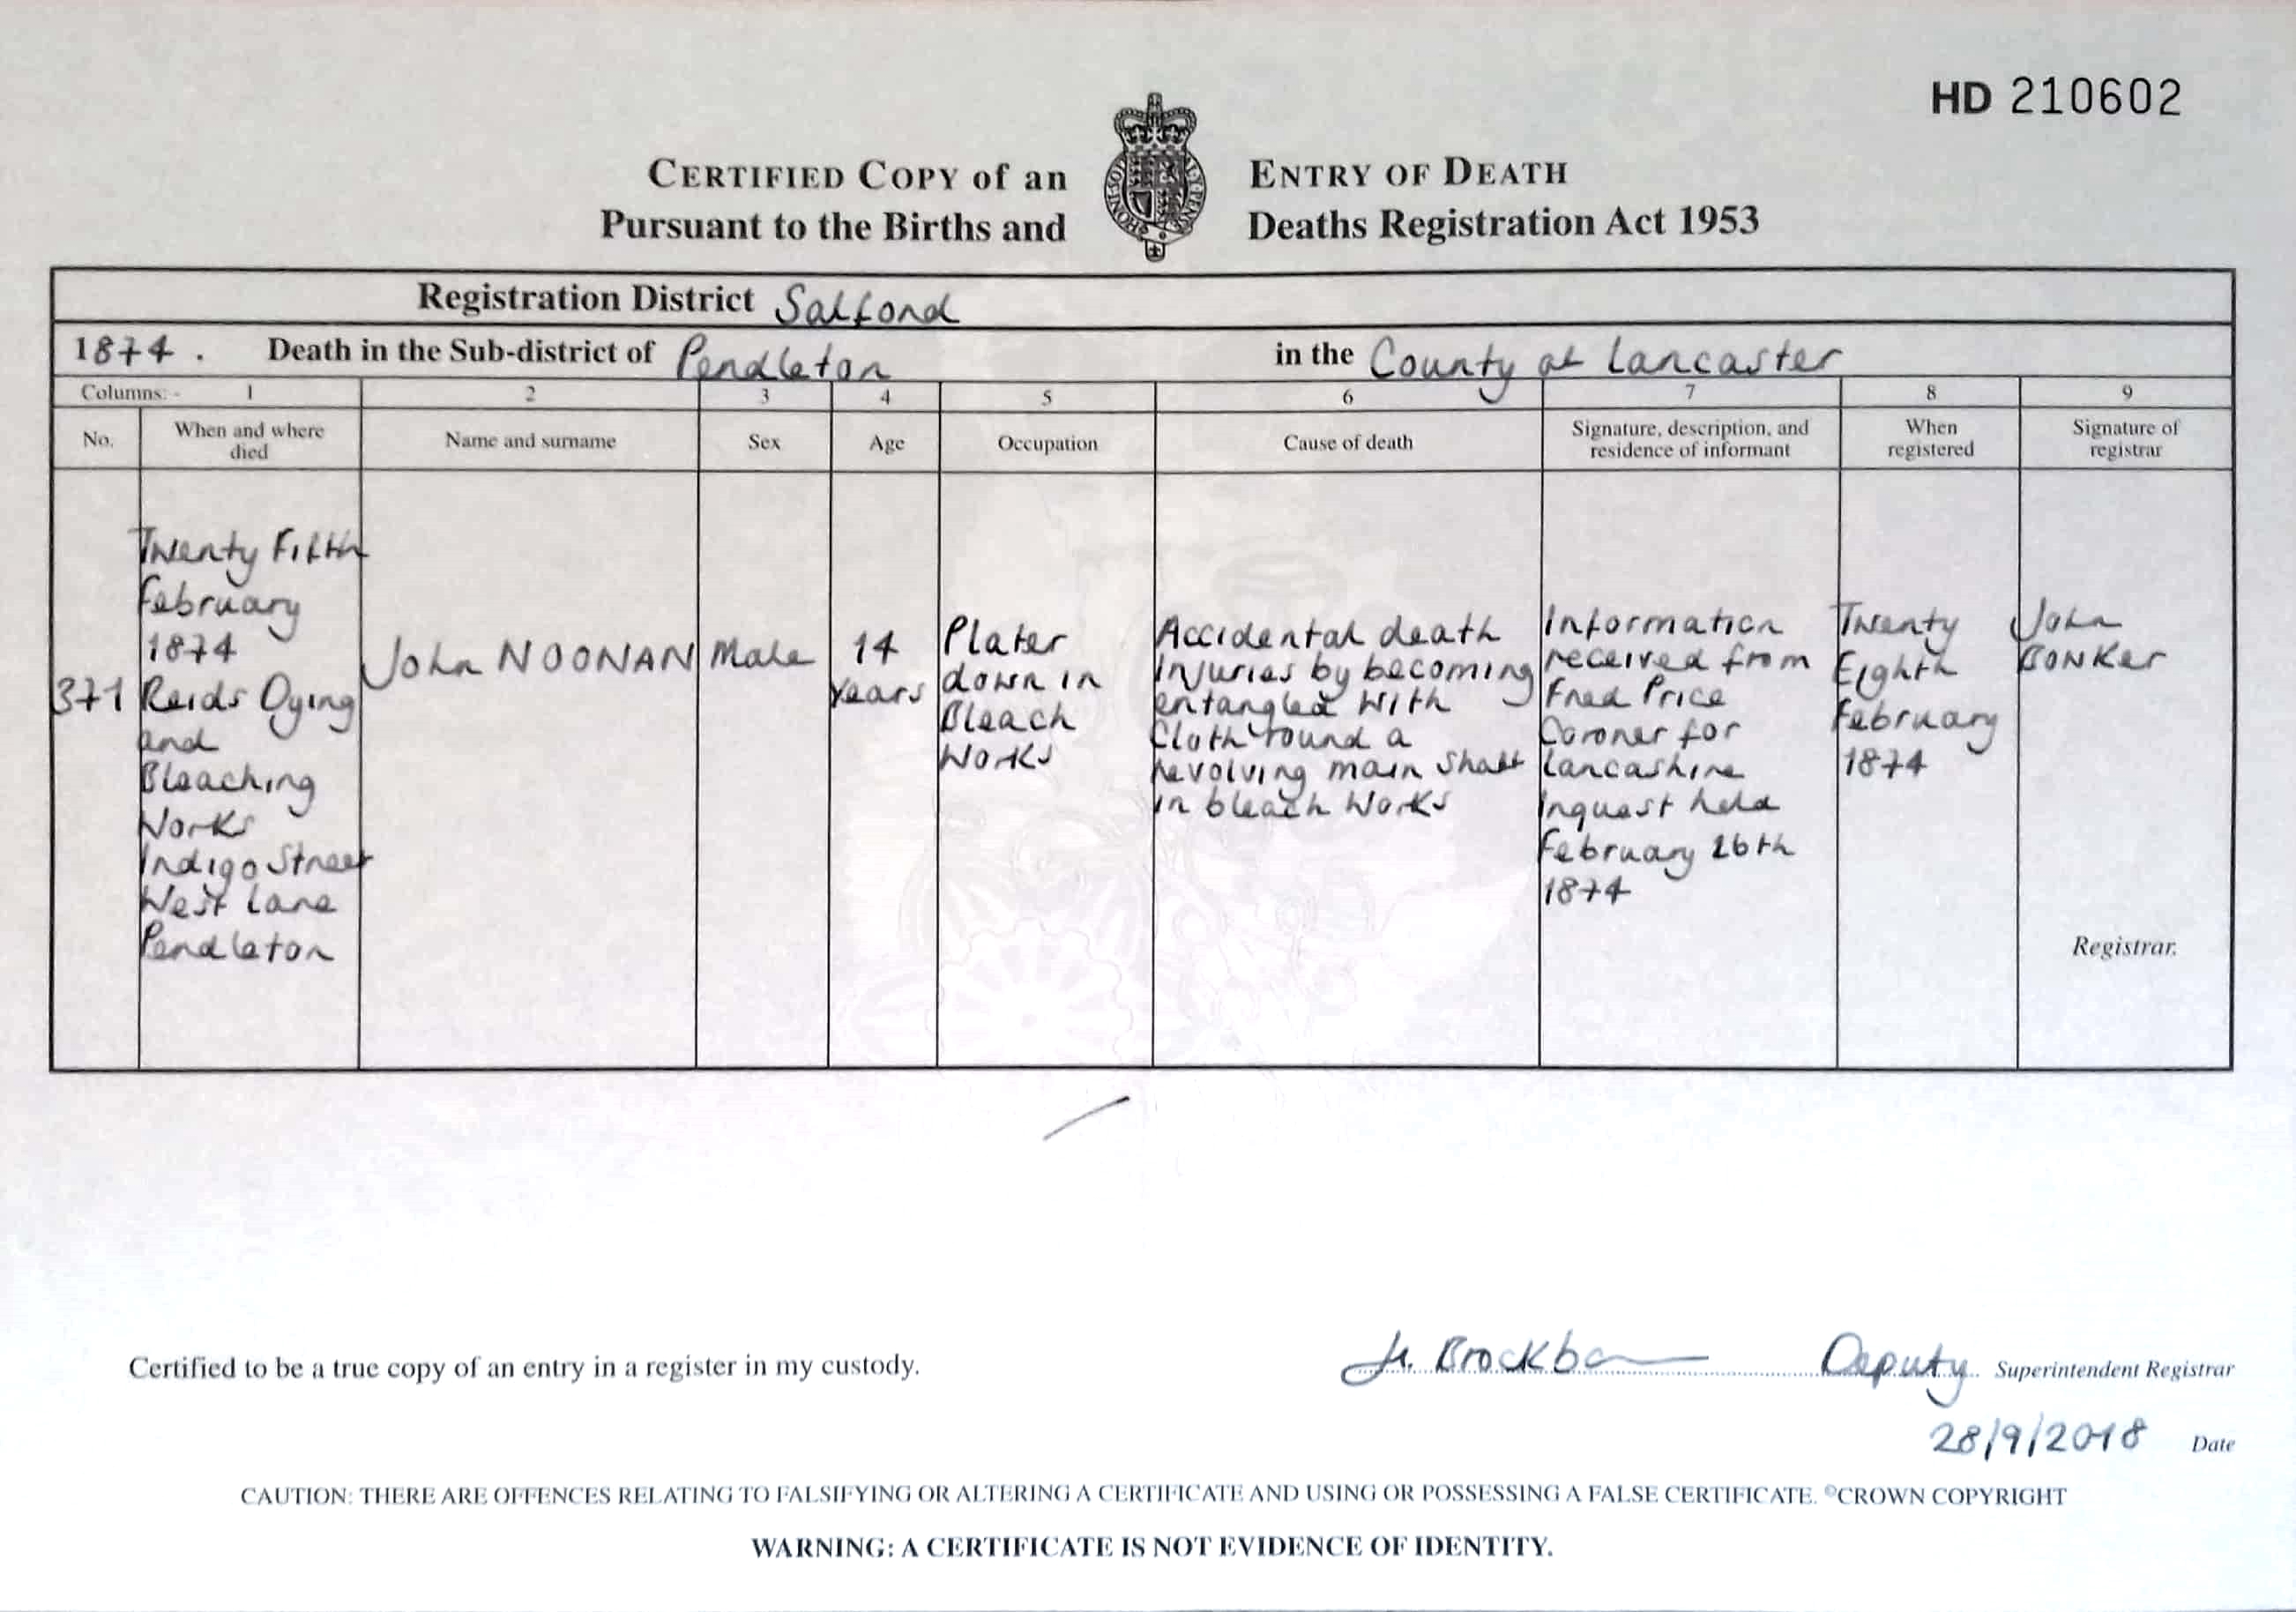 HD 210602
CERTIFIED COPY of an ENTRY OF DEATH
Pursuant to the Births and Deaths Registration Act 1953
Registration District Salford
1874. Death in the Sub-district of Pendleton in the County of Lancaster
Columns:- 1 2 3 4 5 6 7 8 9
No.
When and where
died
Name and surname
Sex
Age
Occupation
Cause of death
Signature, description, and
residence of informant
When
registered
Signature of
registrar
371
Twenty Fifth
February
1874
Reids Dying
and
Bleaching
Works
Indigo Street
West Lane
Pendleton
John NOONAN
Male
14
years
Plater
down in
Bleach
Works
Accidental death
injuries by becoming
entangled with
cloth round a
revolving main shaft
in bleach works
Information
received from
Fred Price
Coroner for
Lancashire
Inquest held
February 26th
1874
Twenty
Eighth
February
1874
John
BONKER
Registrar.
Certified to be a true copy of an entry in a register in my custody.
Deputy Superintendent Registrar
28/9/2018 Date
CAUTION: THERE ARE OFFENCES RELATING TO FALSIFYING OR ALTERING A CERTIFICATE AND USING OR POSSESSING A FALSE CERTIFICATE. ©CROWN COPYRIGHT
WARNING: A CERTIFICATE IS NOT EVIDENCE OF IDENTITY.